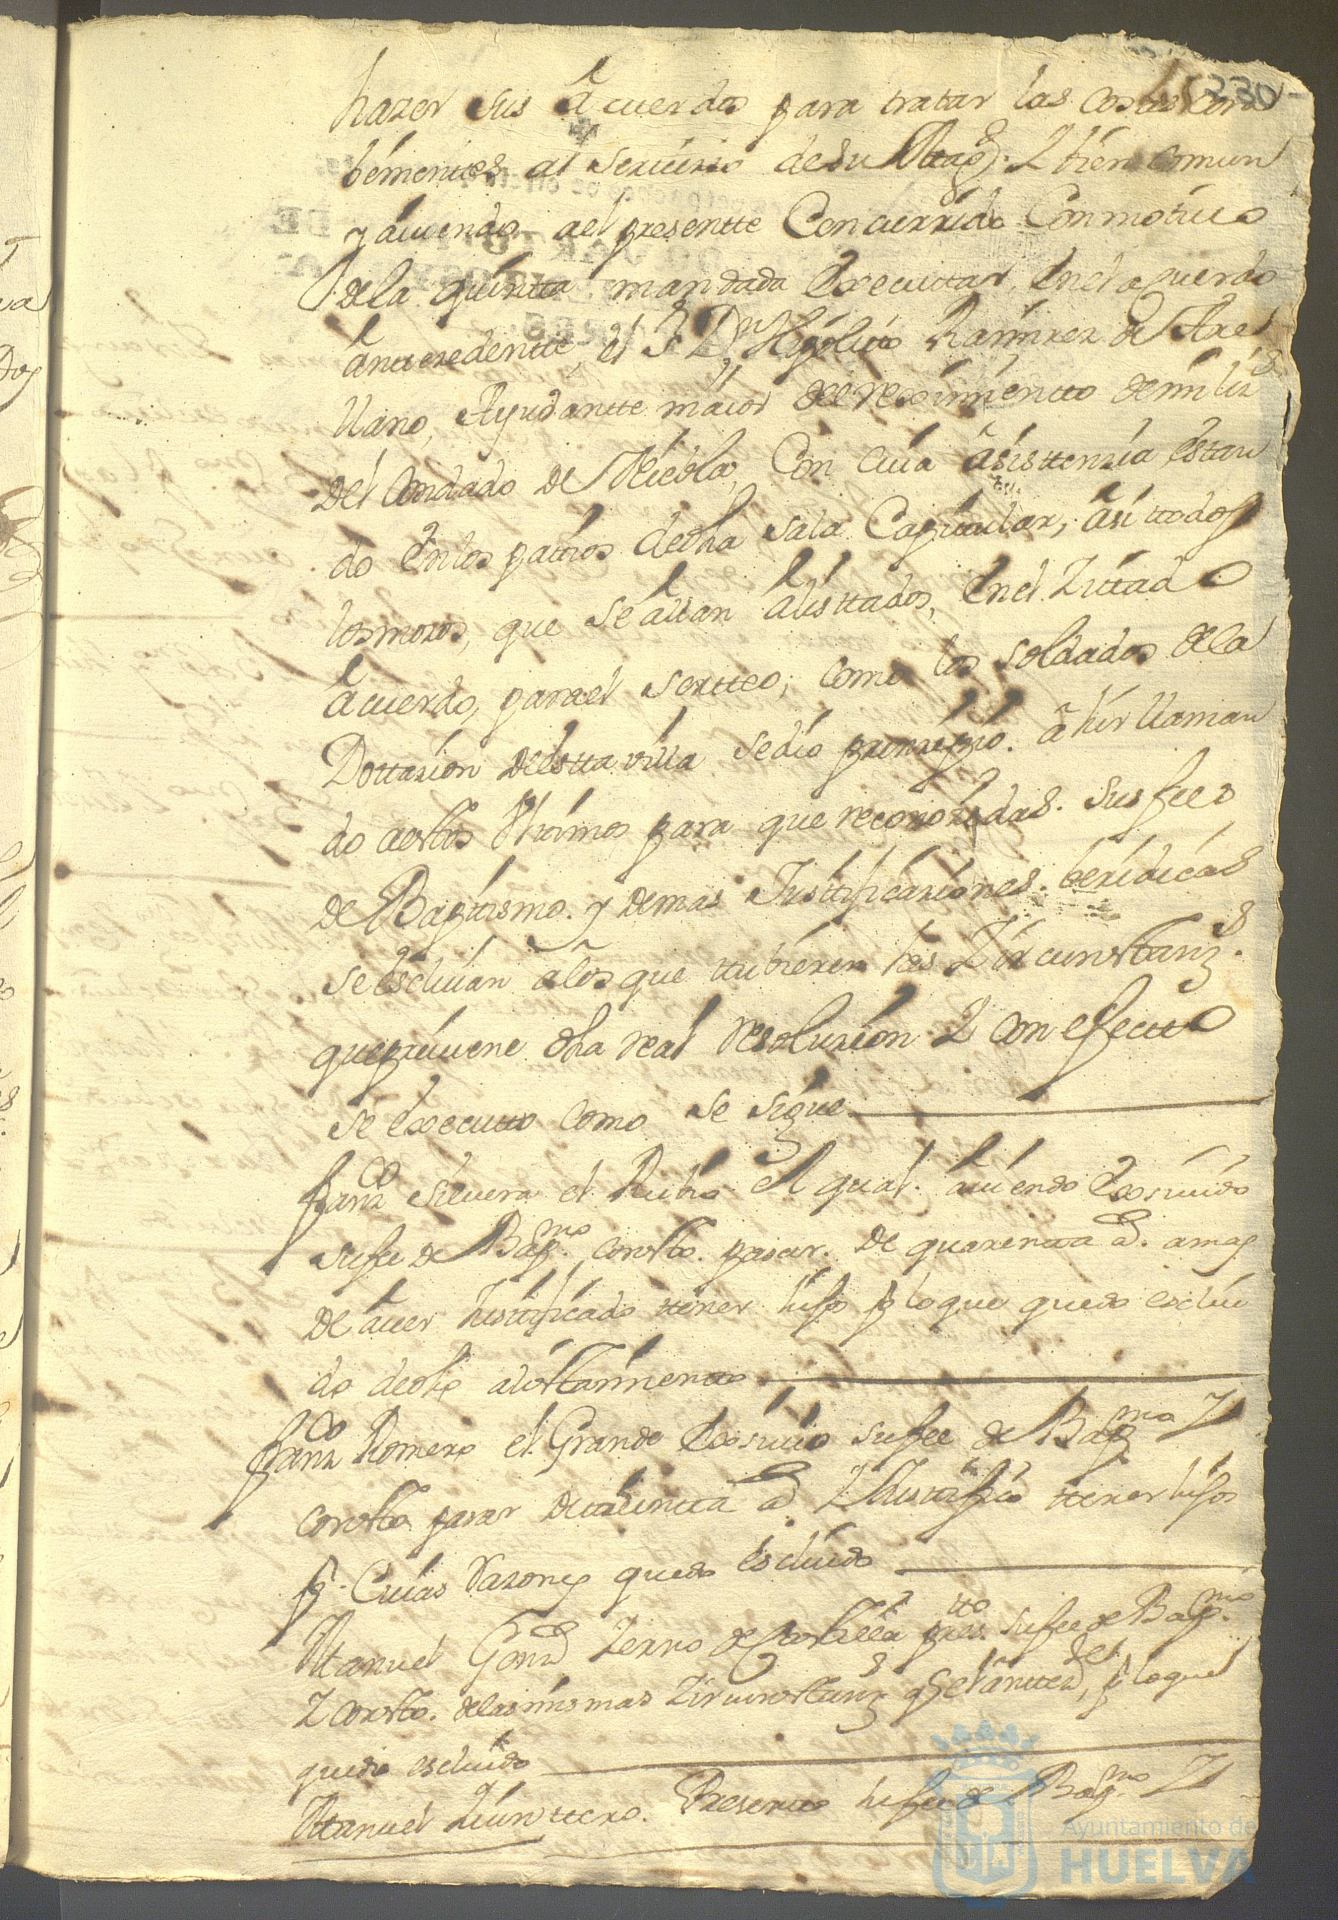 230
hazer sus acuerdos para tratar las cosas con
benientes al servicio de su Magd. Z bien comun
y auiendo al presentte Concurrido Con motiuo
de la quintta mandada Executtar, en el aquerdo
anttezedentte, el Sr. Dn. Higolito Ramirez de Arel
llano, Ayudantte maior del reximientto de miliz.s
del Condado de Niebla, Con cuia asisttenzia estan
do en los patios de dha sala Capitular, asi ttodos
los mozos, que se allan alisttados, en el Zittado
acuerdo, para el sortteo; como los soldados de la
Dottazion de estta villa se dio prinzipio. a hir llaman
do a estos Ultimos para que reconozidas. sus fees,
de Baptismo. y demas Justtificaziones. beridicas
se escluian a los que ttubieren las Zircunstanz.s
que preuiene dha real resoluzion Z con efectto
se executto como se sigue
franco Siluera el Rubio el qual. auiendo Exsiuido
su fee de Bapmo. consto. pasar. de quarentta as. a mas
de auer Justtificado ttener hijo p lo que quedo esclui
do de dho alisttamientto
franco Romero el Grande Exsiuio su fee de Bapmo Z
consto pasar de quarentta as Z Justtifico ttener hijos
p. Cuias Razones quedo escluido
Manuel Gonz Zerno de su fee de Bapmo.
Z consto. de las mismas Zircunstanz.s q el antted.te, p lo que
quedo escluido
Manuel Quinttero. Presentto su fee de Bapmo. Z
Ayuntamiento de
HUELVA